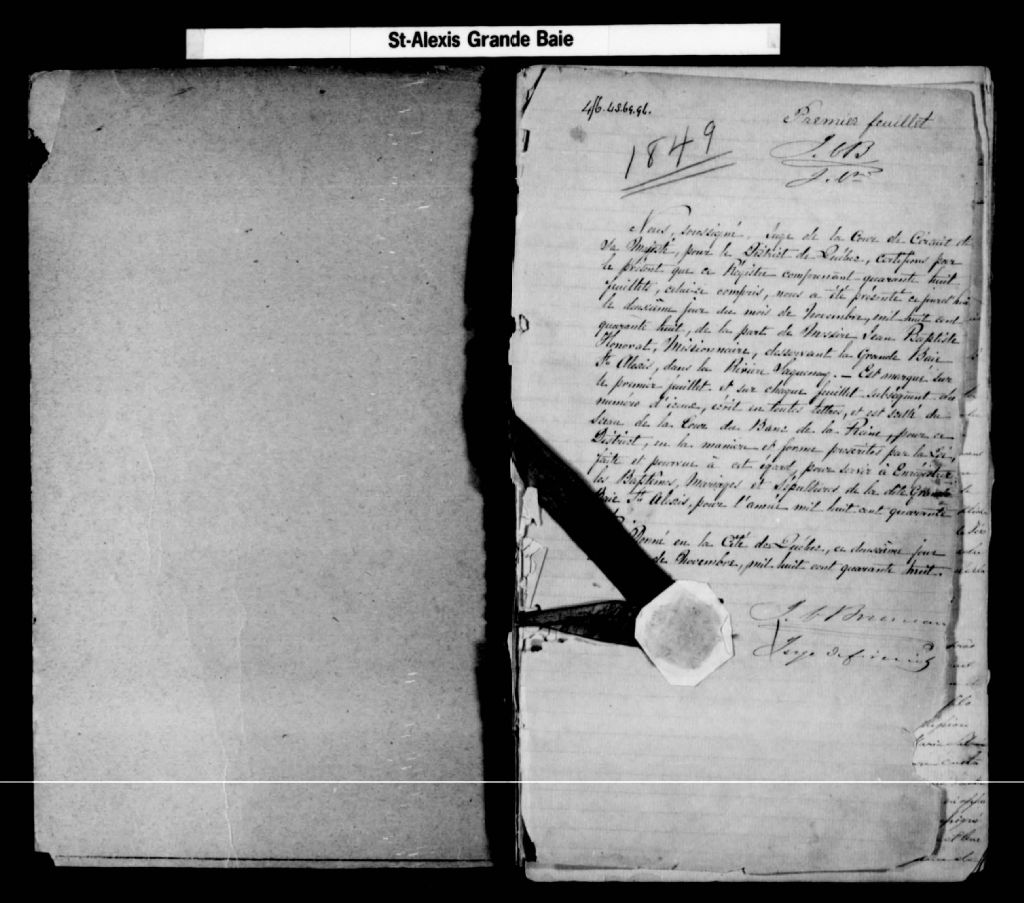 St-Alexis Grande Baie
Premier feuillet
1849
J. B
Nous, soussigné, Juge de la Cour de Circuit de
Sa Majesté, pour le District de Québec, certifions par
le présent que ce Régistre comprenant quarante huit
feuillets, celui-ce compris, nous a été présenté ce jourd'hui
le douzième jour du mois de Novembre, mil huit cent
quarante huit, de la part de Messire Jean Baptiste
Honorat, Missionnaire, desservant la Grande Baie
St Alexis, dans la Rivière Saguenay. — Est marqué sur
le premier feuillet et sur chaque feuillet subséquent du
numéro d'iceux, écrit en toutes lettres, et est scellé du
sceau de la Cour du Banc de la Reine, pour ce
District, en la manière et forme prescrites par la Loi
faite et pourvue à cet égard, pour servir à Enrégistrer
les Baptêmes, Mariages et Sépultures de la dite Grande
Baie St Alexis, pour l'année mil huit cent quarante
Donné en la Cité de Québec, ce douzième jour
de Novembre, mil huit cent quarante huit.
Juge